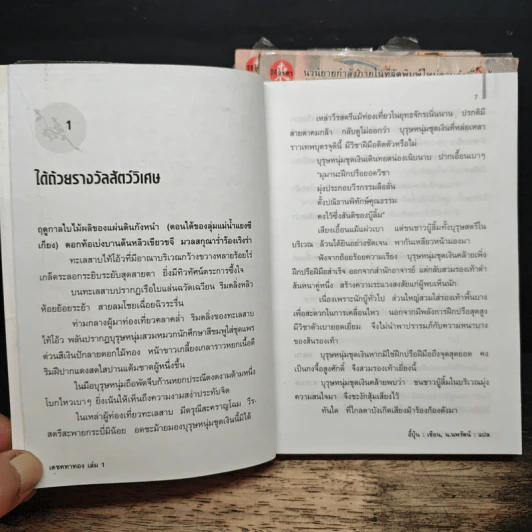 นวนิยายกำลังภายในที่จัดพิมพ์ใหม่
1
ได้ถ้วยรางวัลสัตว์วิเศษ
ฤดูกาลใบไม้ผลิของแผ่นดินกังหนำ (ตอนใต้ของลุ่มแม่น้ำแยงซี
เกียง) ดอกท้อเบ่งบานต้นหลิวเขียวขจี มวลสกุณาร่ำร้องเริงร่า
ทะเลสาบไท้โอ้วที่มีอาณาบริเวณกว้างขวางหลายร้อยไร่
เกล็ดระลอกระยิบระยับสุดสายตา ยิ่งมีทิวทัศน์ตระการซึ้งใจ
บนทะเลสาบปรากฏเรือใบแล่นฉวัดเฉวียน ริมตลิ่งหลิว
ห้อยย้อยระย้า สายลมโชยเฉื่อยฉิวระรื่น
ท่ามกลางผู้มาท่องเที่ยวคลาคล่ำ ริมตลิ่งของทะเลสาบ
ไท้โอ้ว พลันปรากฏบุรุษหนุ่มสวมหมวกนักศึกษาสีชมพูใส่ชุดแพร
ต่วนสีเงินปักลายดอกไม้ทอง หน้าขาวเกลี้ยงเกลาราวหยกเนื้อดี
ริมฝีปากแดงสดใสปานแต้มชาดผู้หนึ่งขึ้น
ในมือบุรุษหนุ่มถือพัดจีบก้านหยกประณีตงดงามด้ามหนึ่ง
โบกไหวเบาๆ ยิ่งเน้นให้เห็นถึงความงามสง่าประทับจิต
ในเหล่าผู้ท่องเที่ยวทะเลสาบ มีดรุณีสะคราญโฉม วีร-
สตรีสะพายกระบี่มีน้อย อดชะม้ายมองบุรุษหนุ่มชุดเงินนี้มิได้
เดชคทาทอง เล่ม 1
7
เหล่าวีรสตรีแม้ท่องเที่ยวในยุทธจักรเนิ่นนาน ปรกติมี
สายตาคมกล้า กลับดูไม่ออกว่า บุรุษหนุ่มชุดเงินที่หล่อเหลา
ราวเทพบุตรจุตินี้ มีวิชาฝีมือติดตัวหรือไม่
บุรุษหนุ่มชุดเงินเดินทอดน่องเนิบนาบ ปากเอื้อนเบาๆ
"มุมานะฝึกปรือยอดวิชา
มุ่งประกอบวีรกรรมลือลั่น
ตั้งปณิธานพิทักษ์คุณธรรม
คงไว้ซึ่งสันติของบู๊ลิ้ม"
เสียงเอื้อนแม้แผ่วเบา แต่ชนชาวบู๊ลิ้มทั้งบุรุษสตรีใน
บริเวณ ล้วนได้ยินอย่างชัดเจน พากันเหลียวหน้ามองมา
ฟังจากถ้อยร้อยความเรียง บุรุษหนุ่มชุดเงินคล้ายเพิ่ง
ฝึกปรือฝีมือสำเร็จ ออกจากสำนักอาจารย์ แต่กลับสวมรองเท้าดำ
ส้นหนาคู่หนึ่ง สร้างความระแวงสงสัยแก่ผู้พบเห็นนัก
เนื่องเพราะนักบู๊ทั่วไป ส่วนใหญ่สวมใส่รองเท้าพื้นบาง
เพื่อสะดวกในการเคลื่อนไหว นอกจากมีพลังการฝึกปรือสุดสูง
มีวิชาตัวเบายอดเยี่ยม จึงไม่นำพาปรารมภ์กับความหนาบาง
ของส้นรองเท้า
บุรุษหนุ่มชุดเงินหากมิใช่ฝึกปรือฝีมือถึงจุดสุดยอด คง
เป็นกงจื้อสูงศักดิ์ จึงสวมรองเท้าเยี่ยงนี้
บุรุษหนุ่มชุดเงินคล้ายพบว่า ชนชาวบู๊ลิ้มในบริเวณมุ่ง
ความสนใจมา จึงชะงักสุ้มเสียงไว้
ทันใด ที่ไกลตาบังเกิดเสียงม้าร้องก้องดังมา
อี้ปุ้น : เขียน, น.นพรัตน์ : แปล